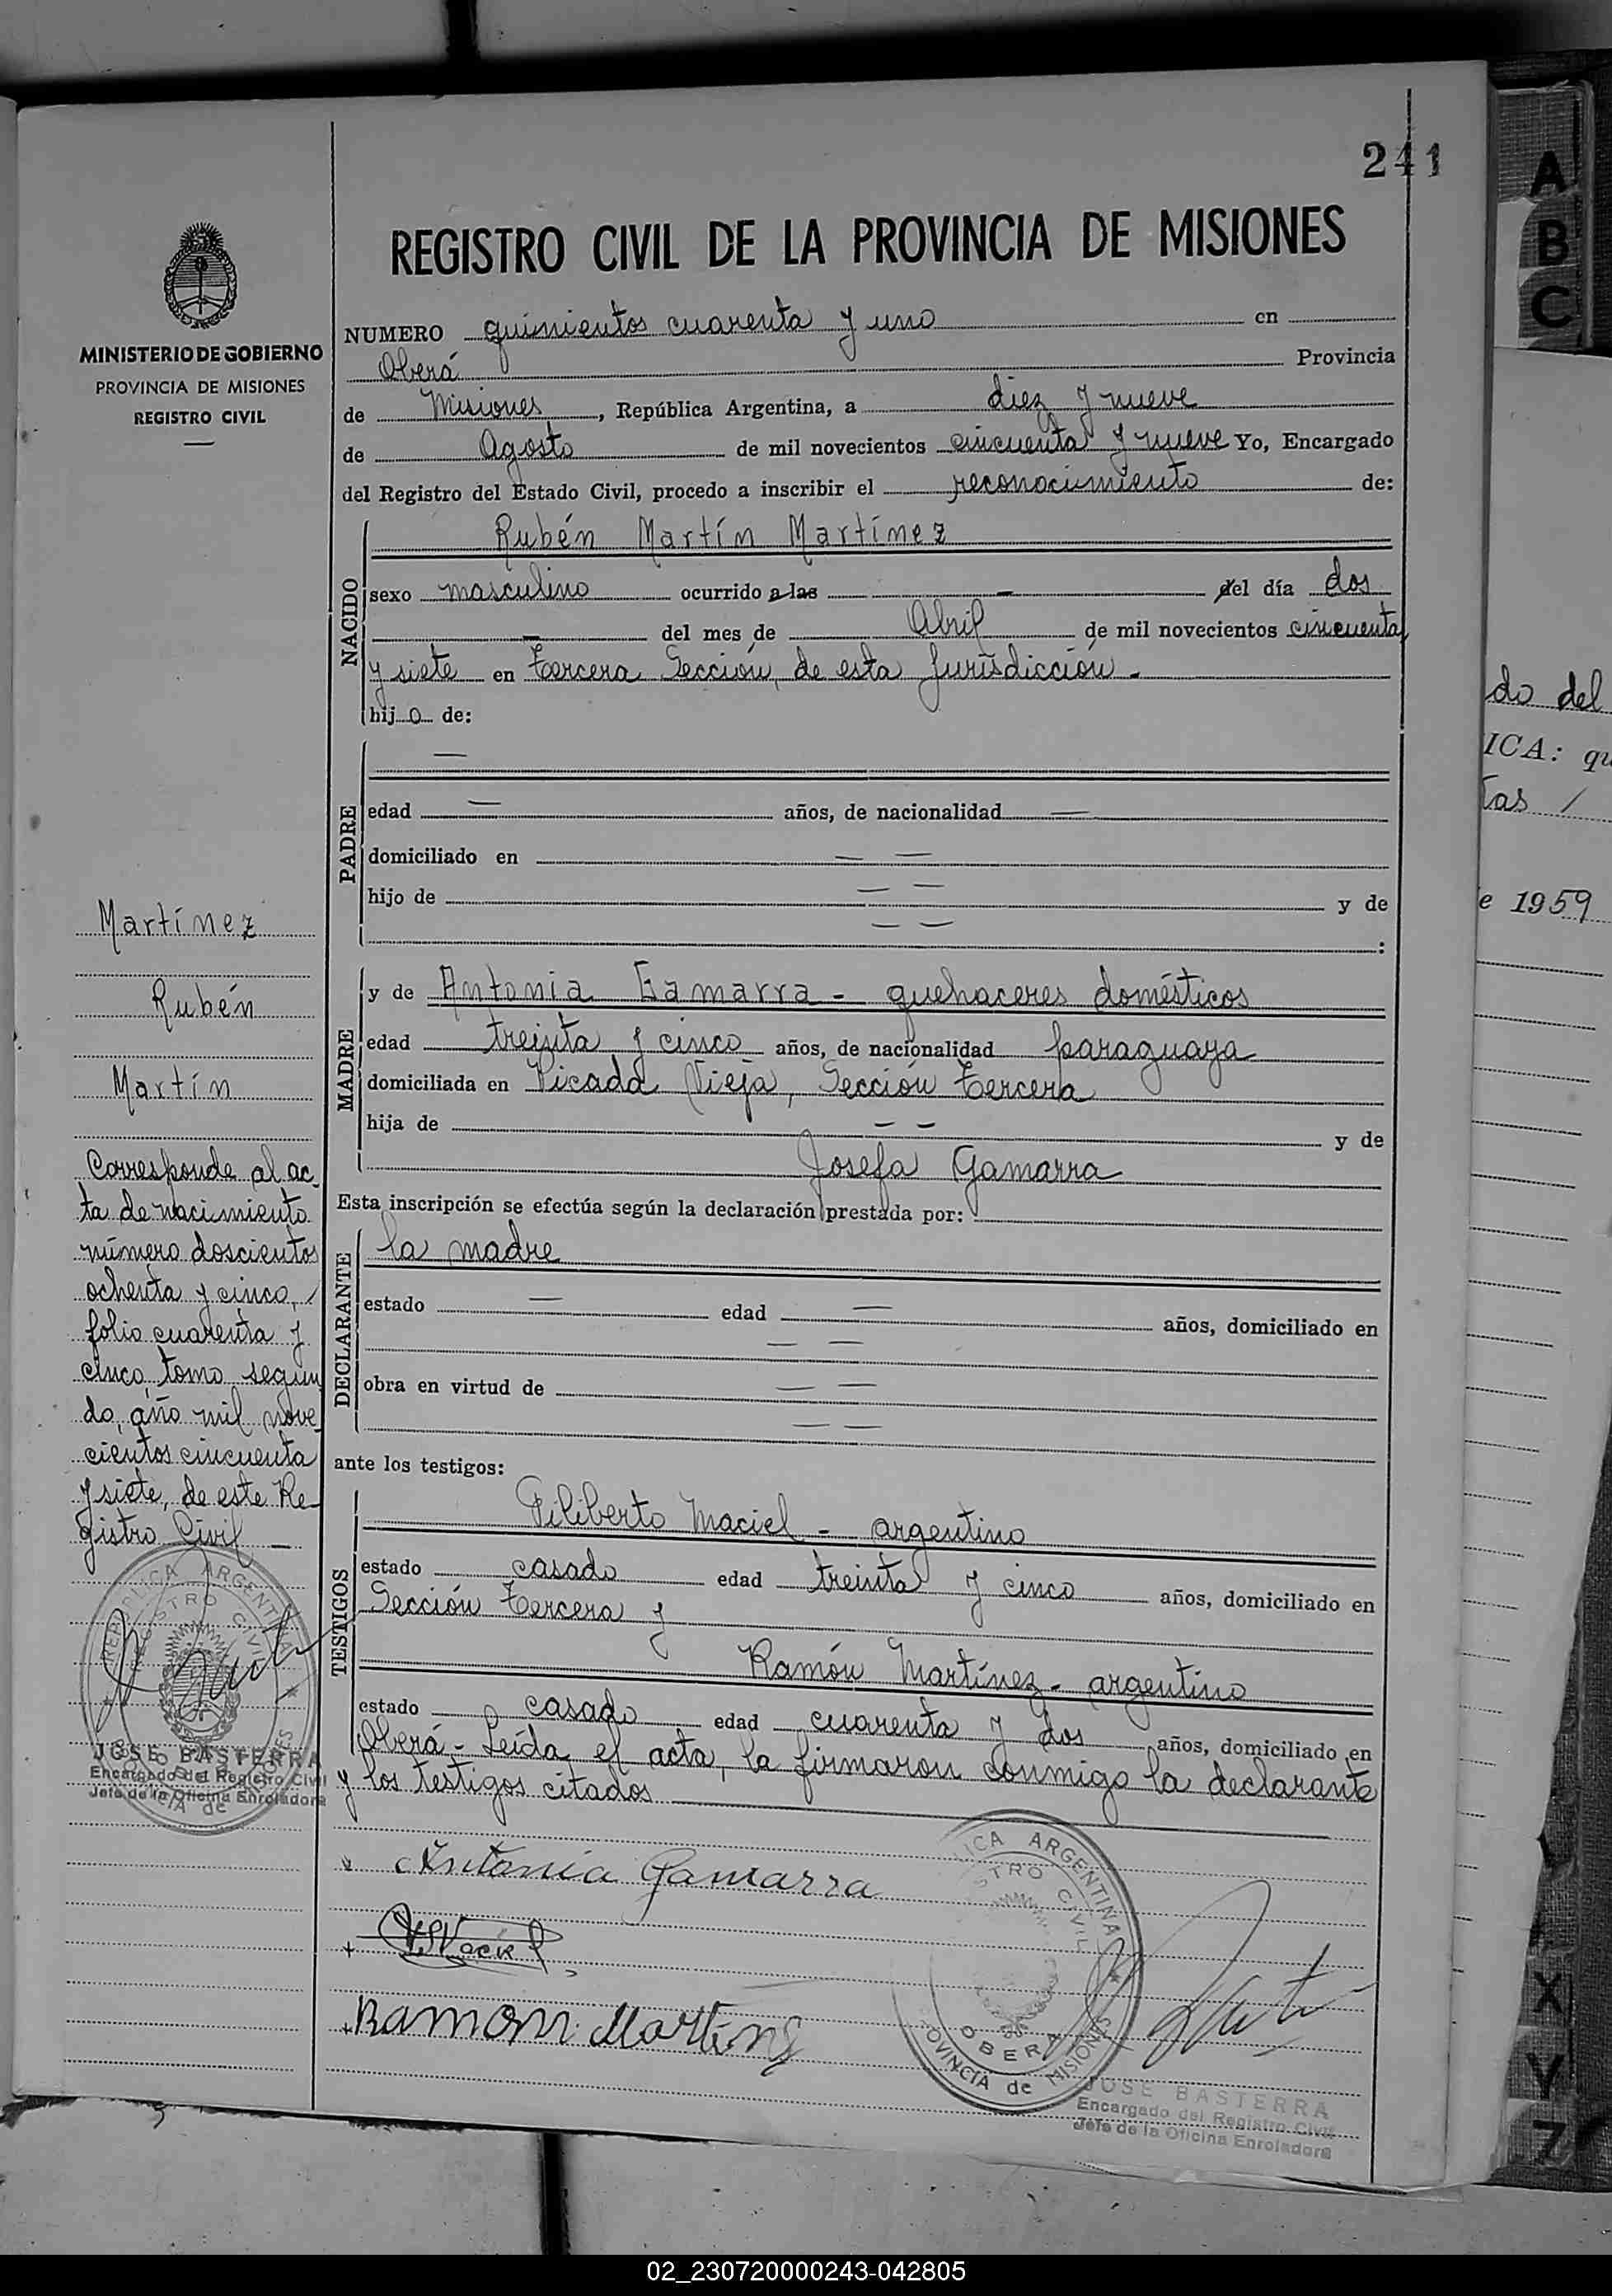 241
REGISTRO CIVIL DE LA PROVINCIA DE MISIONES
MINISTERIO DE GOBIERNO
PROVINCIA DE MISIONES
REGISTRO CIVIL
NUMERO quinientos cuarenta y uno en
Oberá Provincia
de Misiones, República Argentina, a diez y nueve
de Agosto de mil novecientos cincuenta y nueve Yo, Encargado
del Registro del Estado Civil, procedo a inscribir el reconocimiento de:
NACIDO
Rubén Martín Martínez
sexo masculino ocurrido a las — del día dos
— del mes de Abril de mil novecientos cincuenta
y siete en Tercera Sección, de esta Jurisdicción -
hijo de:
PADRE
—
edad — años, de nacionalidad —
domiciliado en — —
hijo de — — y de
— — :
MADRE
y de Antonia Gamarra - quehaceres domésticos
edad treinta y cinco años, de nacionalidad paraguaya
domiciliada en Picada Vieja, Sección Tercera
hija de — — y de
Josefa Gamarra
Esta inscripción se efectúa según la declaración prestada por:
DECLARANTE
la madre
estado — edad — años, domiciliado en
— —
obra en virtud de — —
— —
ante los testigos:
TESTIGOS
Filiberto Maciel - argentino
estado casado edad treinta y cinco años, domiciliado en
Sección Tercera y
Ramón Martínez - argentino
estado casado edad cuarenta y dos años, domiciliado en
Oberá - Leída el acta, la firmaron conmigo la declarante
y los testigos citados
Antonia Gamarra
Maciel
Ramon Martines
REPUBLICA ARGENTINA
REGISTRO CIVIL
OBERA
PROVINCIA de MISIONES
JOSE BASTERRA
Encargado del Registro Civil
Jefe de la Oficina Enroladora
Martínez
Rubén
Martín
Corresponde al ac-
ta de nacimiento
número doscientos
ochenta y cinco, /
folio cuarenta y
cinco, tomo segun
do, año mil nove-
cientos cincuenta
y siete, de este Re-
gistro Civil —
REPUBLICA ARGENTINA
REGISTRO CIVIL
JOSE BASTERRA
Encargado del Registro Civil
Jefe de la Oficina Enroladora
do del
ICA: qu
tas /
e 1959
A
B
C
X
Y
Z
02_230720000243-042805